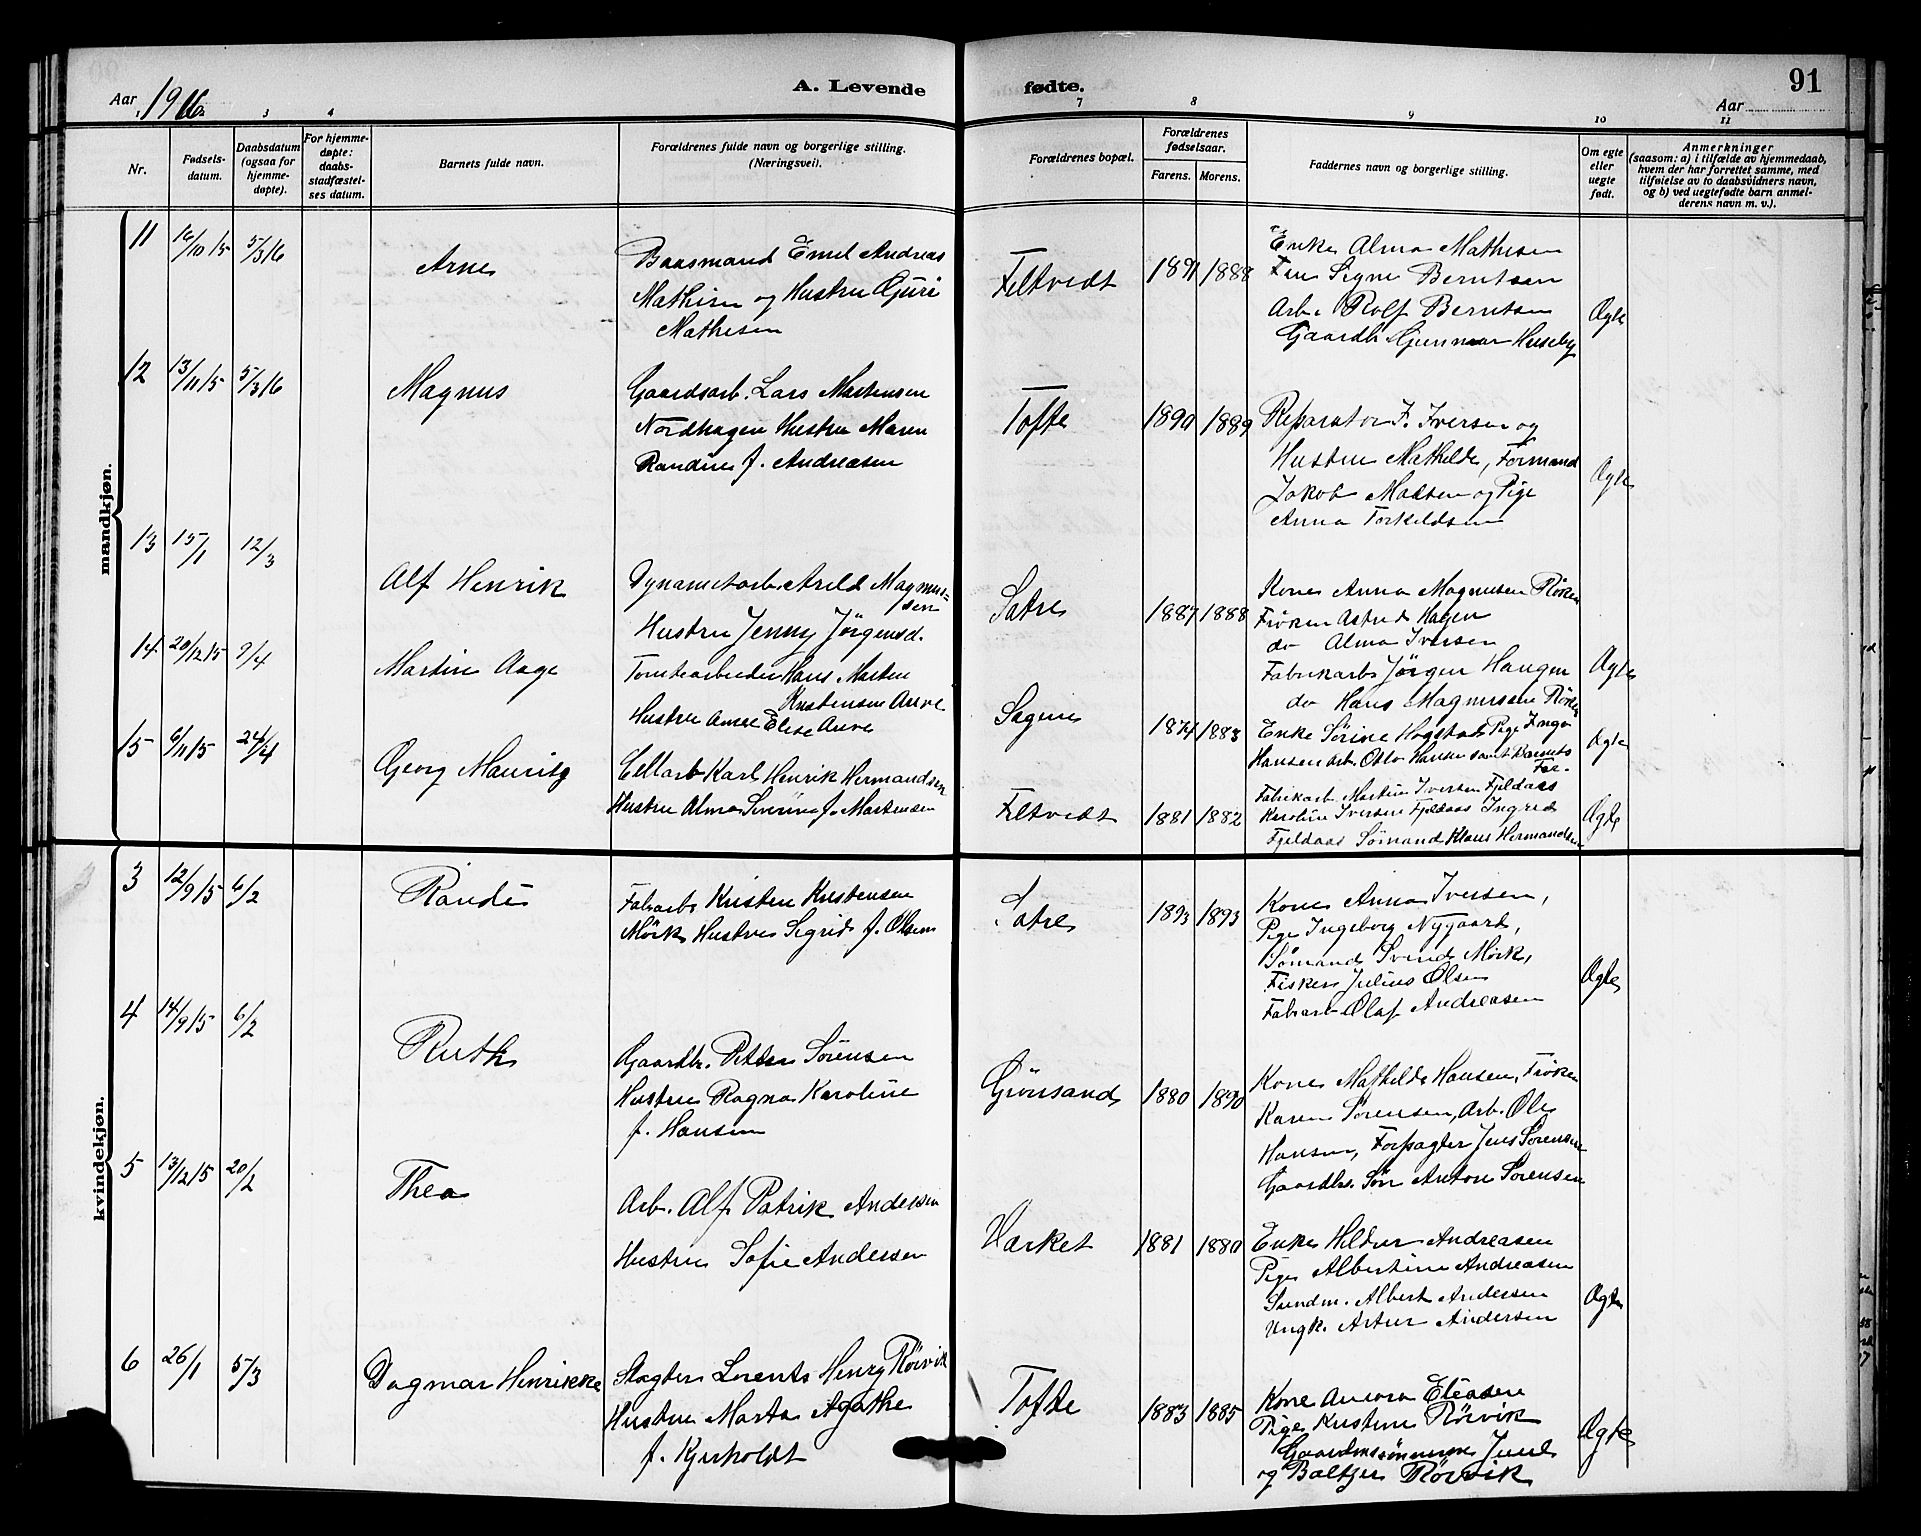 Aar 1916
A. Levende
fødte.
Aar
91
3 4 7 8 9 10 11
Nr.
Fødsels-
datum.
Daabsdatum
(ogsaa for
hjemme-
døpte).
For hjemme-
døpte:
daabs-
stadfæstel-
ses datum.
Barnets fulde navn.
Forældrenes fulde navn og borgerlige stilling.
(Næringsvei).
Forældrenes bopæl.
Forældrenes
fødselsaar.
Farens. Morens.
Faddernes navn og borgerlige stilling.
Om egte
eller
uegte
født.
Anmerkninger
(saasom: a) i tilfælde av hjemmedaab,
hvem der har forrettet samme, med
tilføielse av to daabsvidners navn,
og b) ved uegtefødte barn anmel-
derens navn m. v.).
mandkjøn.
11 16/10 15 5/3 16
Arne
Baasmand Emil Andreas
Mathisen og Hustru Guri
Mathesen
Filtvedt 1891 1888
Enke Alma Mathesen
Fru Signe Berntsen
Arb. Rolf Berntsen
Gaardbr Gunnar Huseby
Ægte
12 13/11 15 5/3 16
Magnus
Gaardsarb. Lars Martensen
Nordhagen Hustru Maren
Randine f. Andreasen
Tofte 1890 1889
Reparatør F. Iversen og
Hustru Mathilde, Formand
Jakob Madsen og Pige
Anna Torkildsen
Ægte
13 15/1 12/3
Alf Henrik
Dynamitarb. Arild Magnus-
sen
Hustru Jenny Jörgensd.
Satre 1887 1888
Kone Anna Magnusen Röken
Fröken Astrid Hagen
do Alma Iversen
Fabrikarb Jørgen Haugen
do Hans Magnussen Röken
Ægte
14 20/12 15 9/4
Martin Aage
Tomtearbeider Hans Martin
Kristensen Auve
Hustru Anne Elise Auve
Sagene 1874 1883
Enke Sørine Hogstad Pige Inga
Hansen arb. Otto Hansen samt Barnets
Far.
Ægte
15 6/11 15 24/4
Georg Mauritz
Cellarb Karl Henrik Hermandsen
Hustru Alma Severine f. Martensen
Filtvedt 1881 1882
Fabrikarb Martin Iversen Fjeldaas
Karoline Iversen Fjeldaas Ingrid
Fjeldaas Sømand Klaus Hermandsen
Ægte
kvindekjøn.
3 12/9 15 6/2
Randi
Fabarb Kristen Kristensen
Mörk Hustru Sigrid f. Olsen
Satre 1893 1893
Kone Anna Iversen,
Pige Ingeborg Nygaard,
Sömand Svend Mörk,
Fisker Julius Olsen
Fabarb Olaf Andreasen
Ægte
4 14/9 15 6/2
Ruth
Gaardbr. Petter Sörensen
Hustru Ragna Karoline
f. Hansen
Grönsand 1880 1890
Kone Mathilde Hansen, Fröken
Karen Sörensen, Arb. Ole
Hansen, Forpagter Jens Sörensen
Gaardbr. Søn Anton Sorensen
5 13/12 15 20/2
Thea
Arb. Alf Patrik Andersen
Hustru Sofie Andersen
Varket 1881 1880
Enke Hildur Andreasen
Pige Albertine Andreasen
Sundm. Albert Andersen
Ungk. Artur Andersen
Ægte
6 26/1 5/3
Dagmar Henrikke
Slagter Lorents Henry Rörvik
Hustru Marta Agathe
f. Kjerholdt
Tofte 1883 1885
Kone Aurora Eliasen
Pige Kristine Rörvik
Gaardmsønnerne Juul
og Baltzer Rörvik
Ægte